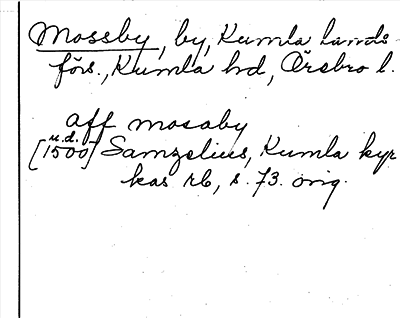 Mossby, by, Kumla lands
förs., Kumla hd, Örebro l.
aff mosaby
u.d.
[1500] Samzelius, Kumla kyr
kas rb, s. 73. orig.